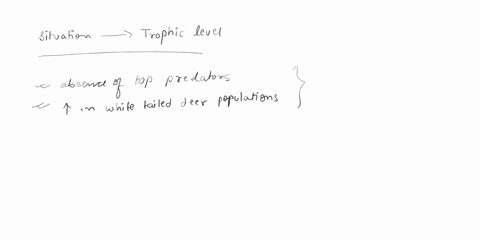 Situation → Trophic level
absence of top predators
↑ in white tailed deer populations